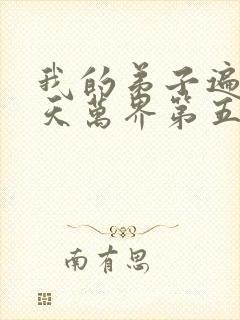 我的弟子遍
天萬界第五
南有思